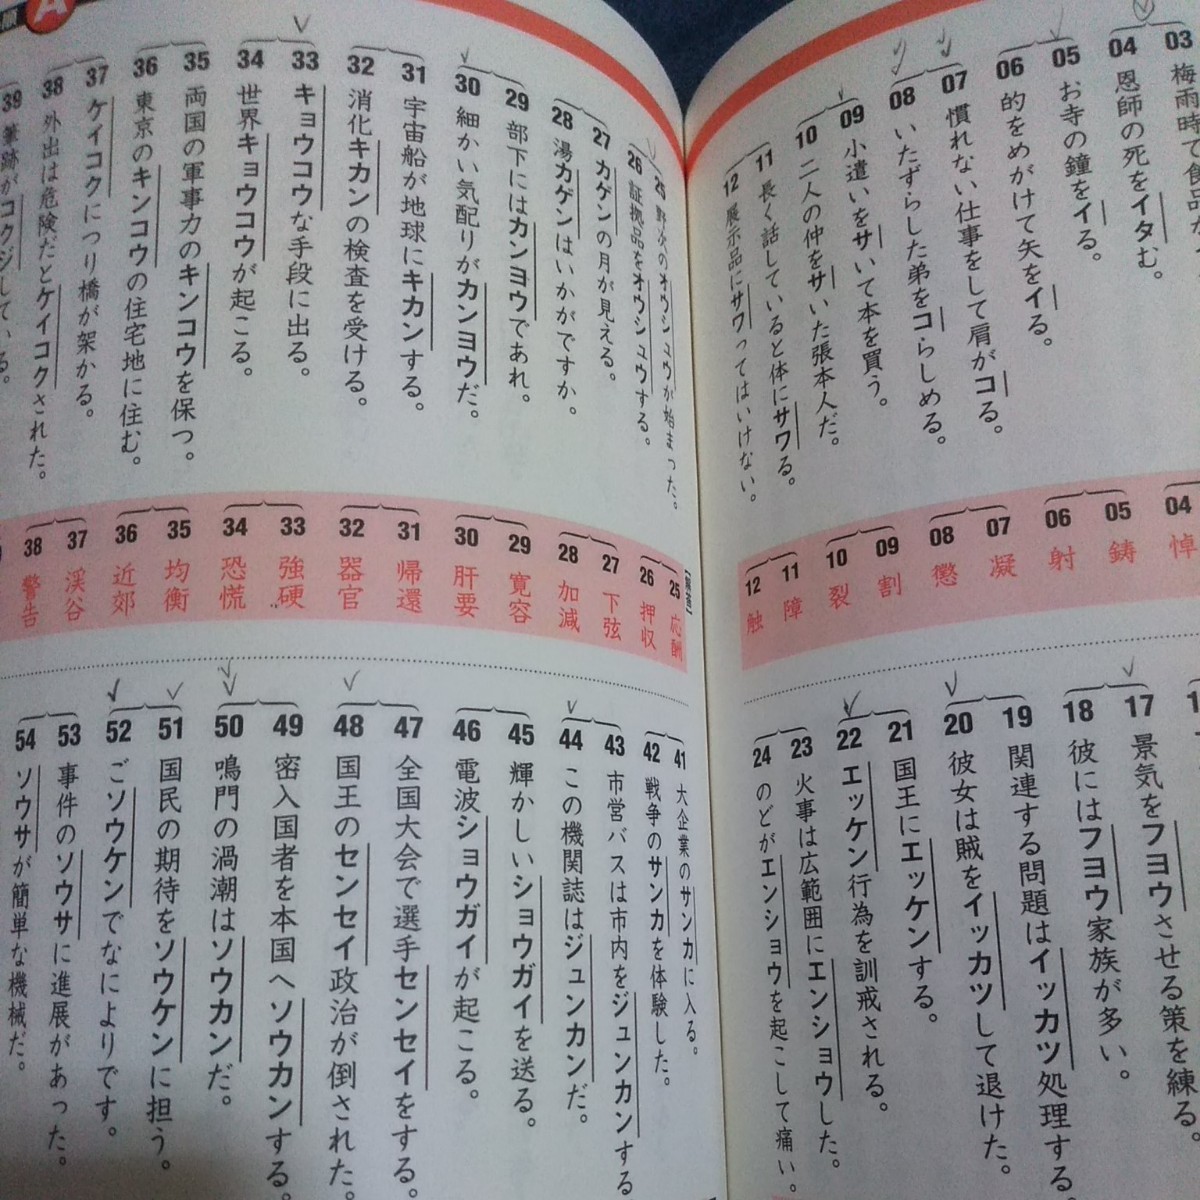 03 梅雨時で食品が
04 恩師の死をイタむ。
05 お寺の鐘をイる。
06 的をめがけて矢をイる。
07 慣れない仕事をして肩がコる。
08 いたずらした弟をコらしめる。
09 小遣いをサいて本を買う。
10 二人の仲をサいた張本人だ。
11 長く話していると体にサワる。
12 展示品にサワってはいけない。
04 悼
05 鋳
06 射
07 凝
08 懲
09 割
10 裂
11 障
12 触
17 景気をフヨウさせる策を練る。
18 彼にはフヨウ家族が多い。
19 関連する問題はイッカツ処理する
20 彼女は賊をイッカツして退けた。
21 国王にエッケンする。
22 エッケン行為を訓戒される。
23 火事は広範囲にエンショウした。
24 のどがエンショウを起こして痛い。
25 野次のオウシュウが始まった。
26 証拠品をオウシュウする。
27 カゲンの月が見える。
28 湯カゲンはいかがですか。
29 部下にはカンヨウであれ。
30 細かい気配りがカンヨウだ。
31 宇宙船が地球にキカンする。
32 消化キカンの検査を受ける。
33 キョウコウな手段に出る。
34 世界キョウコウが起こる。
35 両国の軍事力のキンコウを保つ。
36 東京のキンコウの住宅地に住む。
37 ケイコクにつり橋が架かる。
38 外出は危険だとケイコクされた。
39 筆跡がコクジしている。
【解答】
25 応酬
26 押収
27 下弦
28 加減
29 寛容
30 肝要
31 帰還
32 器官
33 強硬
34 恐慌
35 均衡
36 近郊
37 渓谷
38 警告
41 大企業のサンカに入る。
42 戦争のサンカを体験した。
43 市営バスは市内をジュンカンする
44 この機関誌はジュンカンだ。
45 輝かしいショウガイを送る。
46 電波ショウガイが起こる。
47 全国大会で選手センセイをする。
48 国王のセンセイ政治が倒された。
49 密入国者を本国へソウカンする。
50 鳴門の渦潮はソウカンだ。
51 国民の期待をソウケンに担う。
52 ごソウケンでなによりです。
53 事件のソウサに進展があった。
54 ソウサが簡単な機械だ。